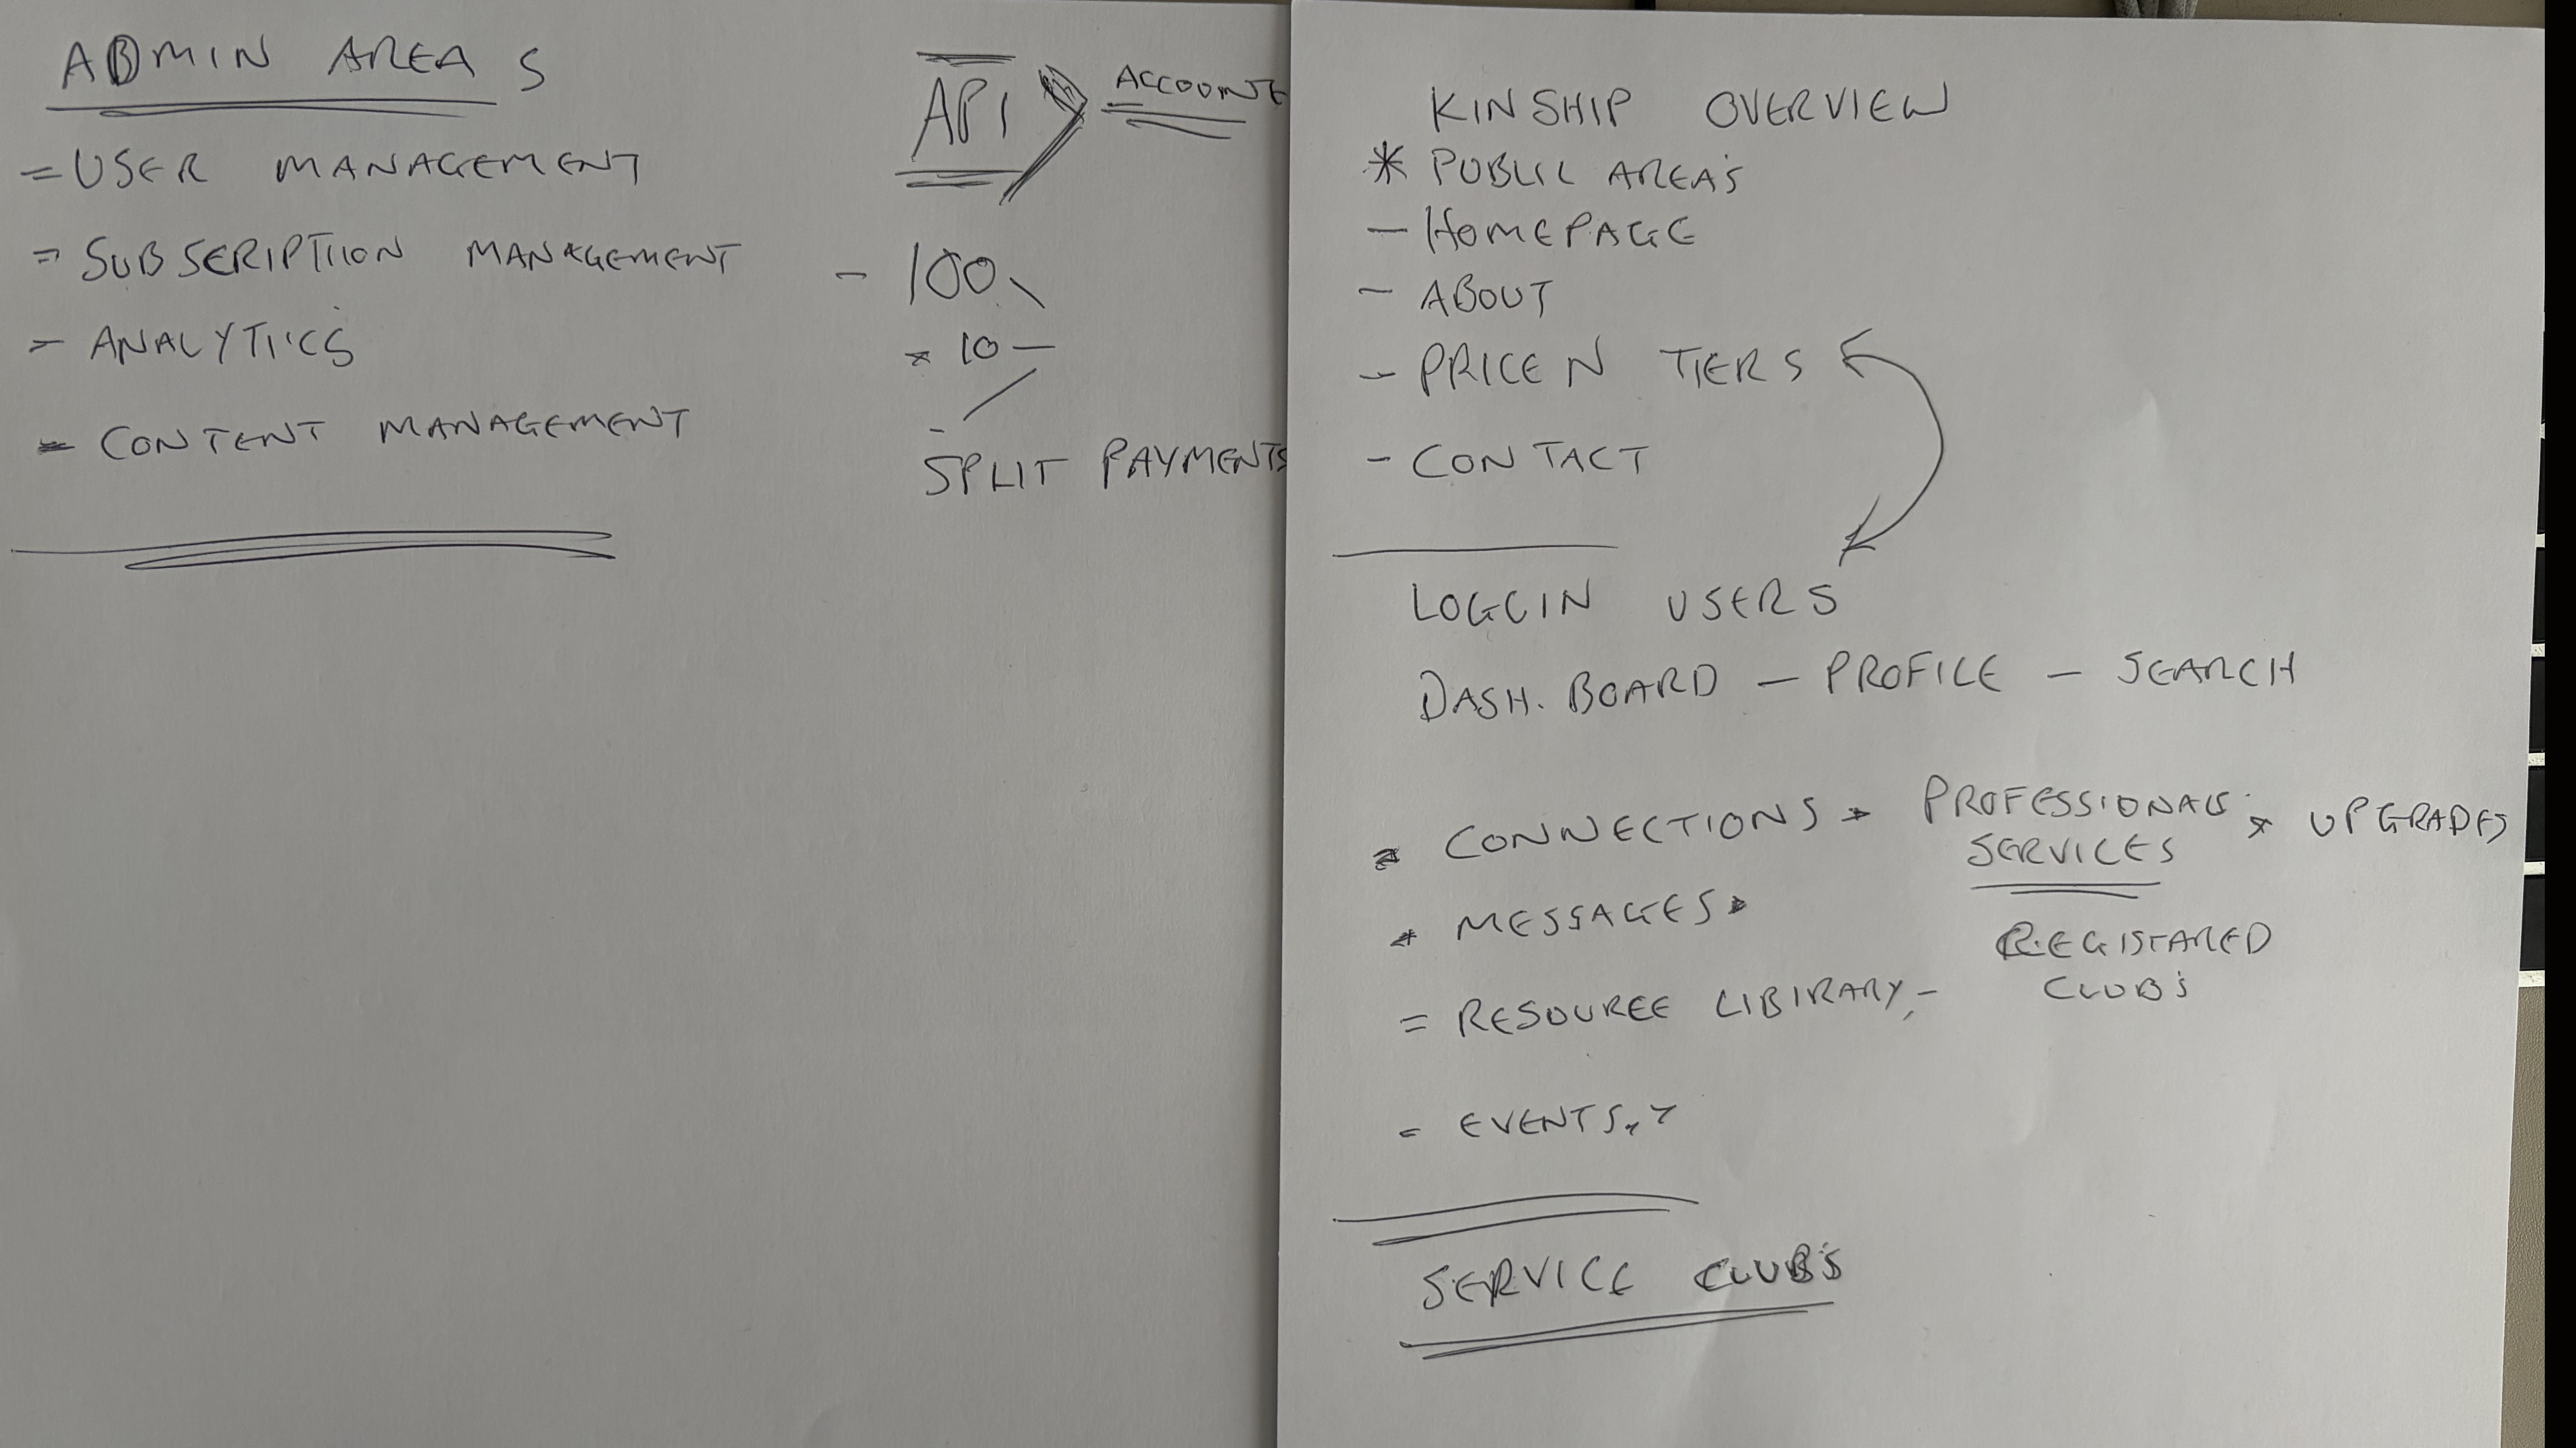 ADMIN AREAS
= USER MANAGEMENT
= SUBSCRIPTIION MANAGEMENT
- ANALYTICS
- CONTENT MANAGEMENT
API
ACCOUNTS
- 100
* 10 -
-
SPLIT PAYMENTS
KINSHIP OVERVIEW
* PUBLIC AREA'S
- HOMEPAGE
- ABOUT
- PRICEN TIERS
- CONTACT
LOGGIN USERS
DASH. BOARD - PROFILE - SEARCH
* CONNECTIONS * PROFESSIONALS * UPGRADES
SERVICES
* MESSAGES *
REGISTARED
CLUB'S
= RESOURCE LIBIRARY, -
= EVENTS.
SERVICE CLUB'S